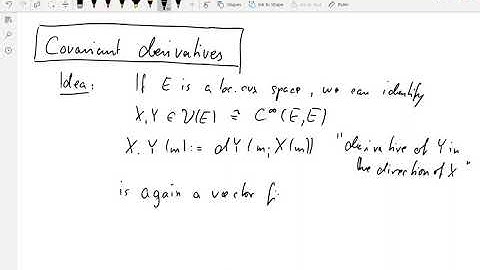 Shapes
Ink to Shape
Ink to
Covariant derivatives
Idea: If E is a loc. cvx space, we can identify
X, Y ∈ V(E) ≅ C^∞(E,E)
X.Y(m) := dY(m; X(m)) "derivative of Y in
the direction of X"
is again a vector f